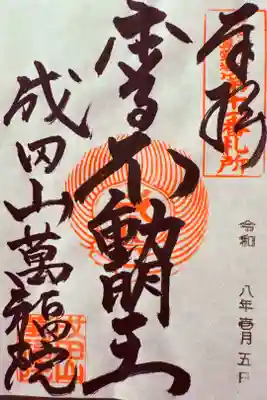 奉拝
札所
令和 八年壱月五日
不動明王
成田山萬福院